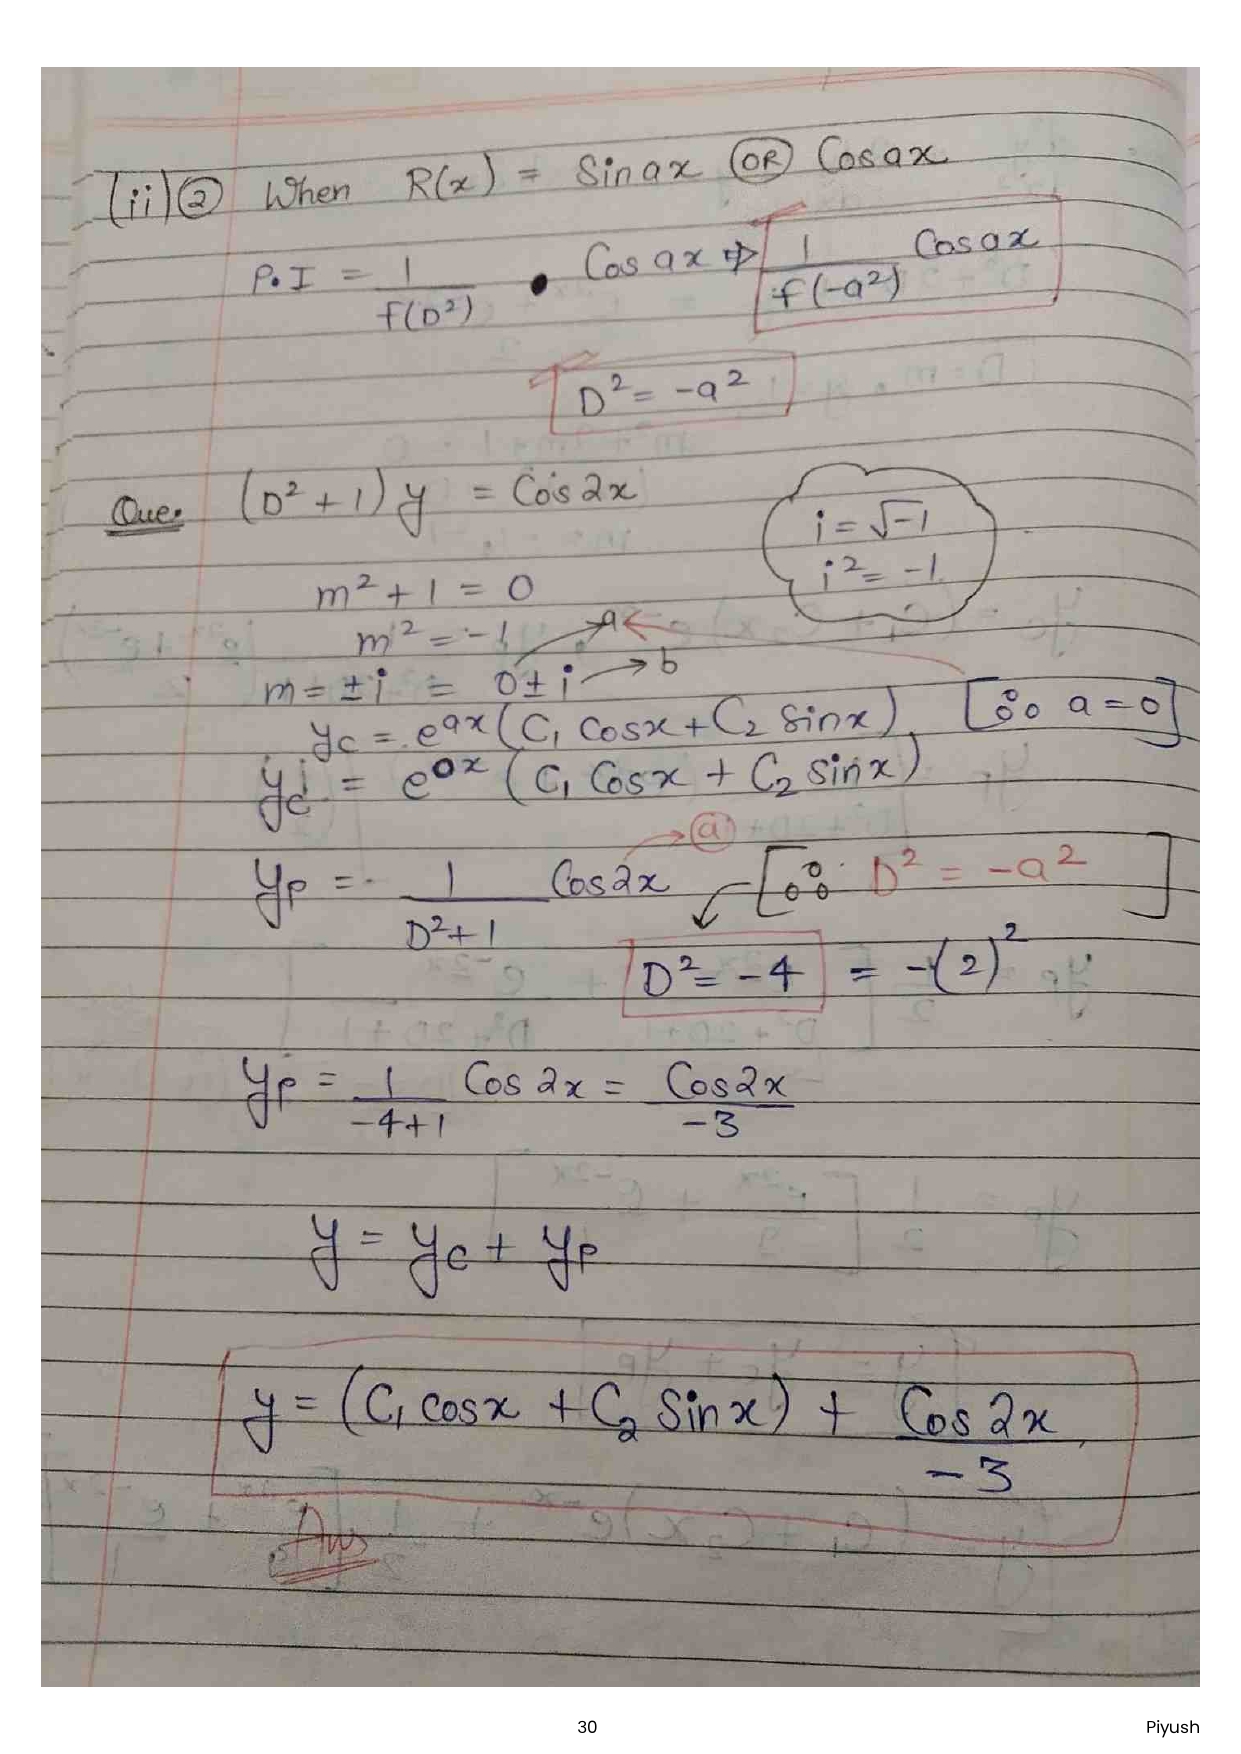 (ii) ② When R(x) = Sin ax (OR) Cos ax
P.I = 1/f(D²) • Cos ax ⇒ 1/f(-a²) Cos ax
D² = -a²
Que. (D² + 1) y = Cos 2x
i = √-1
i² = -1
m² + 1 = 0
m² = -1
a
m = ± i = 0 ± i → b
yc = e^ax (C₁ Cosx + C₂ Sinx) [∴ a = 0]
yc = e^0x (C₁ Cosx + C₂ Sinx)
a
yp = 1/(D²+1) Cos 2x [∵ D² = -a²]
D² = -4 = -(2)²
yp = 1/(-4+1) Cos 2x = Cos2x/-3
y = yc + yp
y = (C₁ cosx + C₂ Sinx) + Cos 2x/-3
Ans
30
Piyush